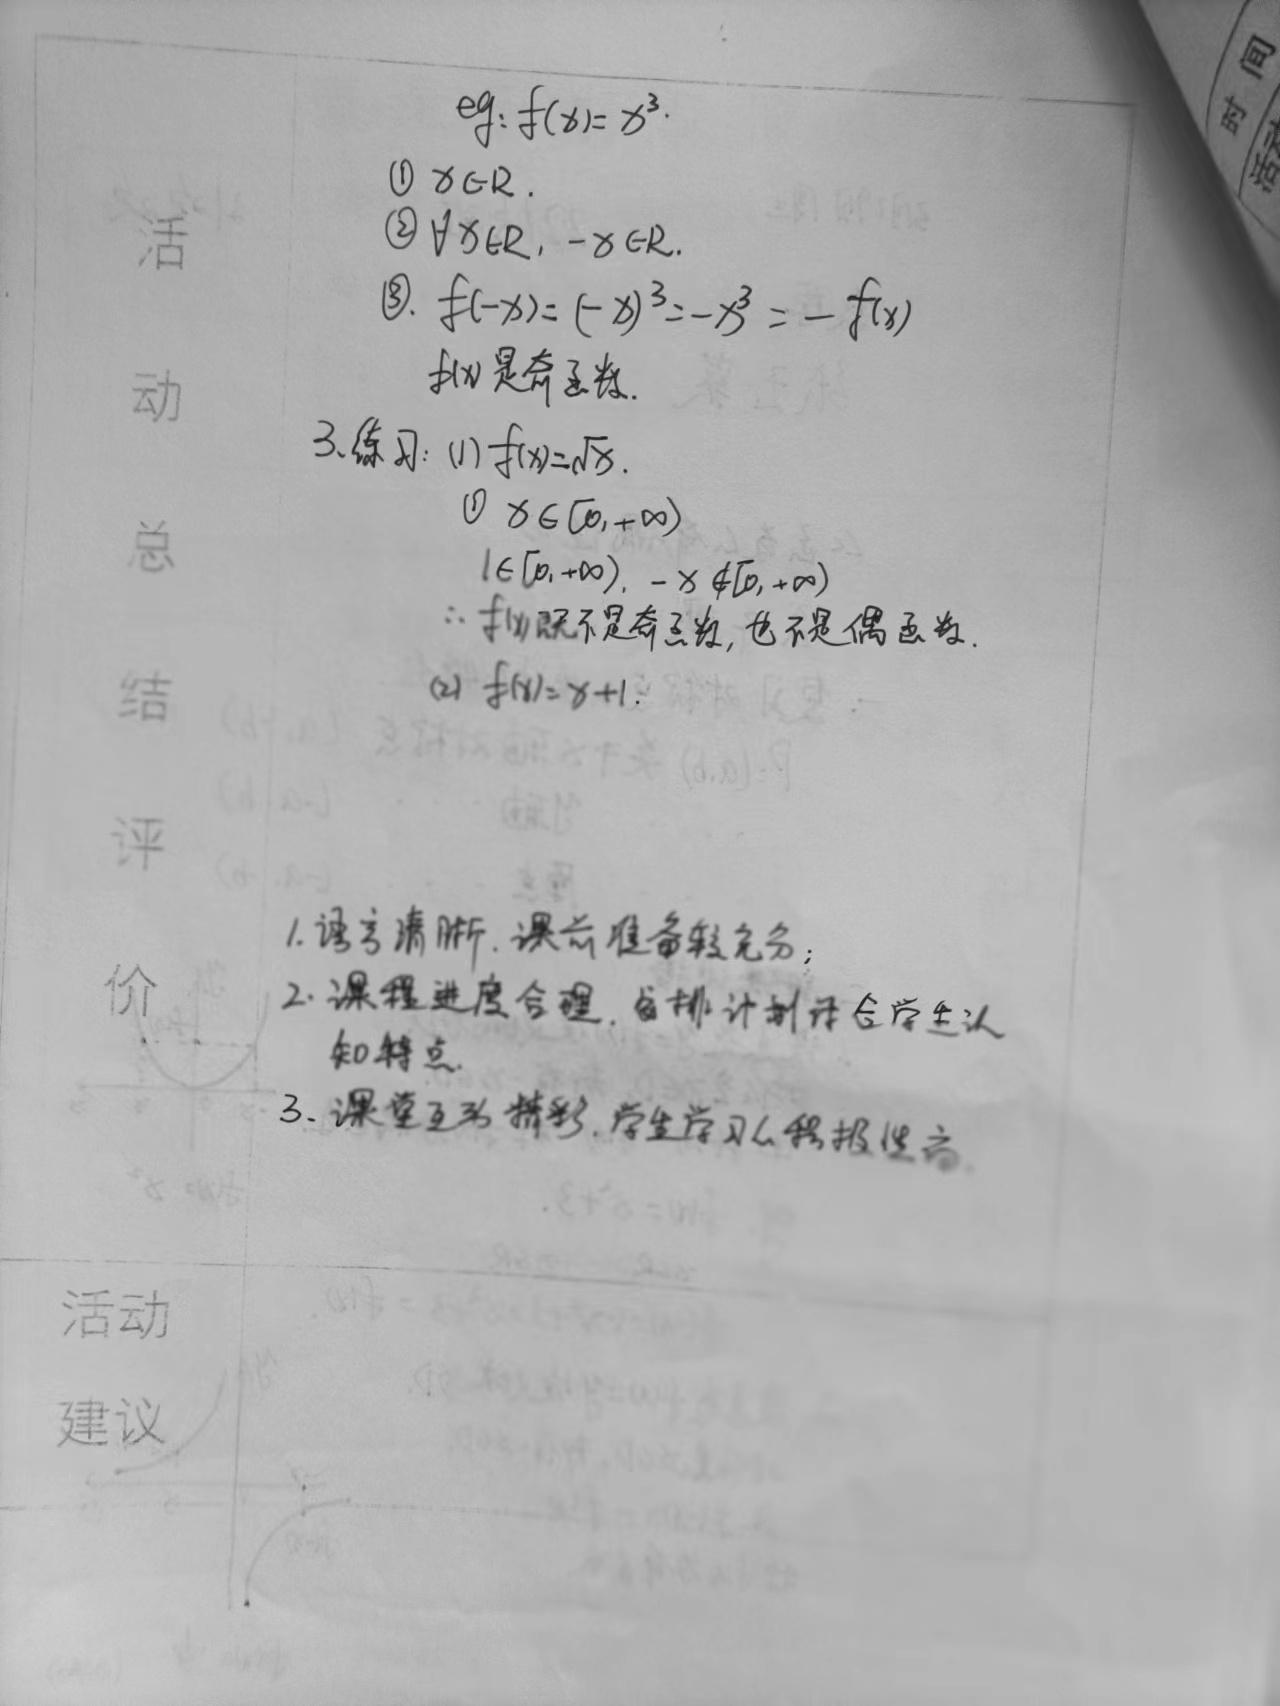 时间
活动
eg: f(x)=x³.
① x∈R.
② ∀x∈R, -x∈R.
③. f(-x)=(-x)³=-x³=-f(x)
f(x)是奇函数.
3、练习: (1) f(x)=√x.
① x∈[0,+∞)
1∈[0,+∞), -x∉[0,+∞)
∴ f(x)既不是奇函数, 也不是偶函数.
(2) f(x)=x+1:
活动总结评价
1. 语言清晰、课前准备较充分;
2. 课程进度合理、安排计划符合学生认
知特点.
3、课堂互动精彩、学生学习积极性高.
活动
建议